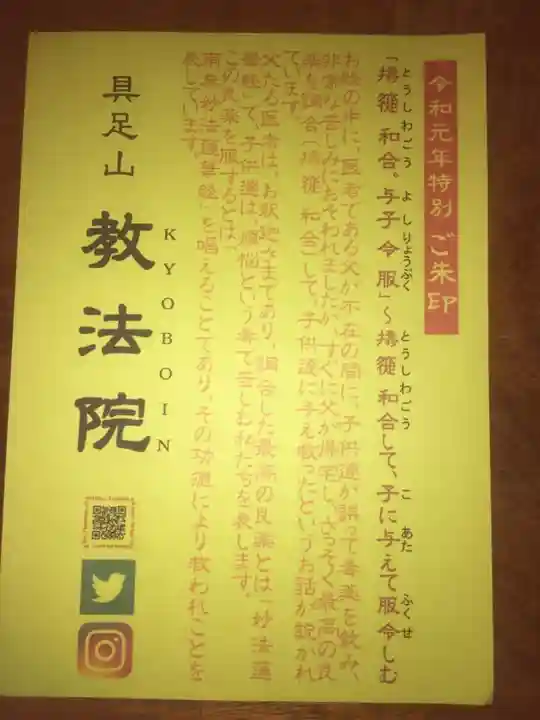 令和元年特別 ご朱印
「擣簁和合。与子令服」～擣簁和合して、子に与えて服令しむ
とうしわごう よしりょうぶく とうしわごう こ あた ふくせ
お経の中に、医者である父が不在の間に、子供達が誤って毒薬を飲み、
非常な苦しみにおそわれましたが、すぐに父が帰宅し、さっそく最高の良
薬を調合(擣簁和合)して、子供達に与え救ったというお話が説かれ
ています。
父たる医者は、お釈迦さまであり、調合した最高の良薬とは「妙法蓮
華経」で、子供達は、煩悩という毒で苦しむ私たちを表します。
この良薬を服するとは、
南無妙法蓮華経」を唱えることであり、その功徳により救われことを
表しています。
具足山
教法院
KYOBOIN